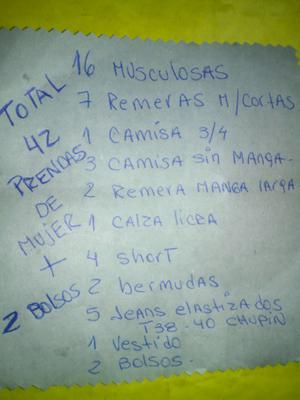 TOTAL
42
PRENDAS
DE
MUJER
+
2 Bolsos
16 MUSCULOSAS
7 RemerAS M/CORTAS
1 CAMISA 3/4
3 CAMISA SIN MANGA-
2 Remera MANGA LARGA
1 CALZA LICRA
4 SHORT
2 bermudas
5 Jeans elastizados
T38-40 CHUPIN
1 Vestido
2 BOLSOS.